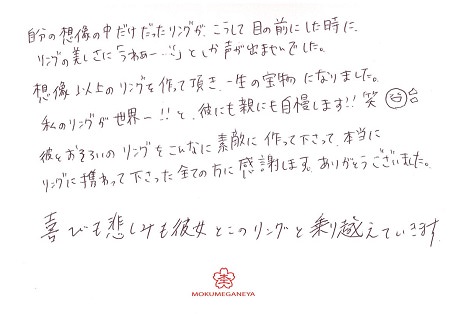 自分の想像の中だけだったリングが、こうして目の前にした時に、
リングの美しさに「うわぁー…!」としか声が出ませんでした。
想像以上のリングを作って頂き、一生の宝物になりました。
私のリングが世界一!!と、彼にも親にも自慢します!!笑
彼とおそろいのリングをこんなに素敵に作って下さって、本当に
リングに携わって下さった全ての方に感謝します。ありがとうございました。
喜びも悲しみも彼女とこのリングと乗り越えていきます。
MOKUMEGANEYA